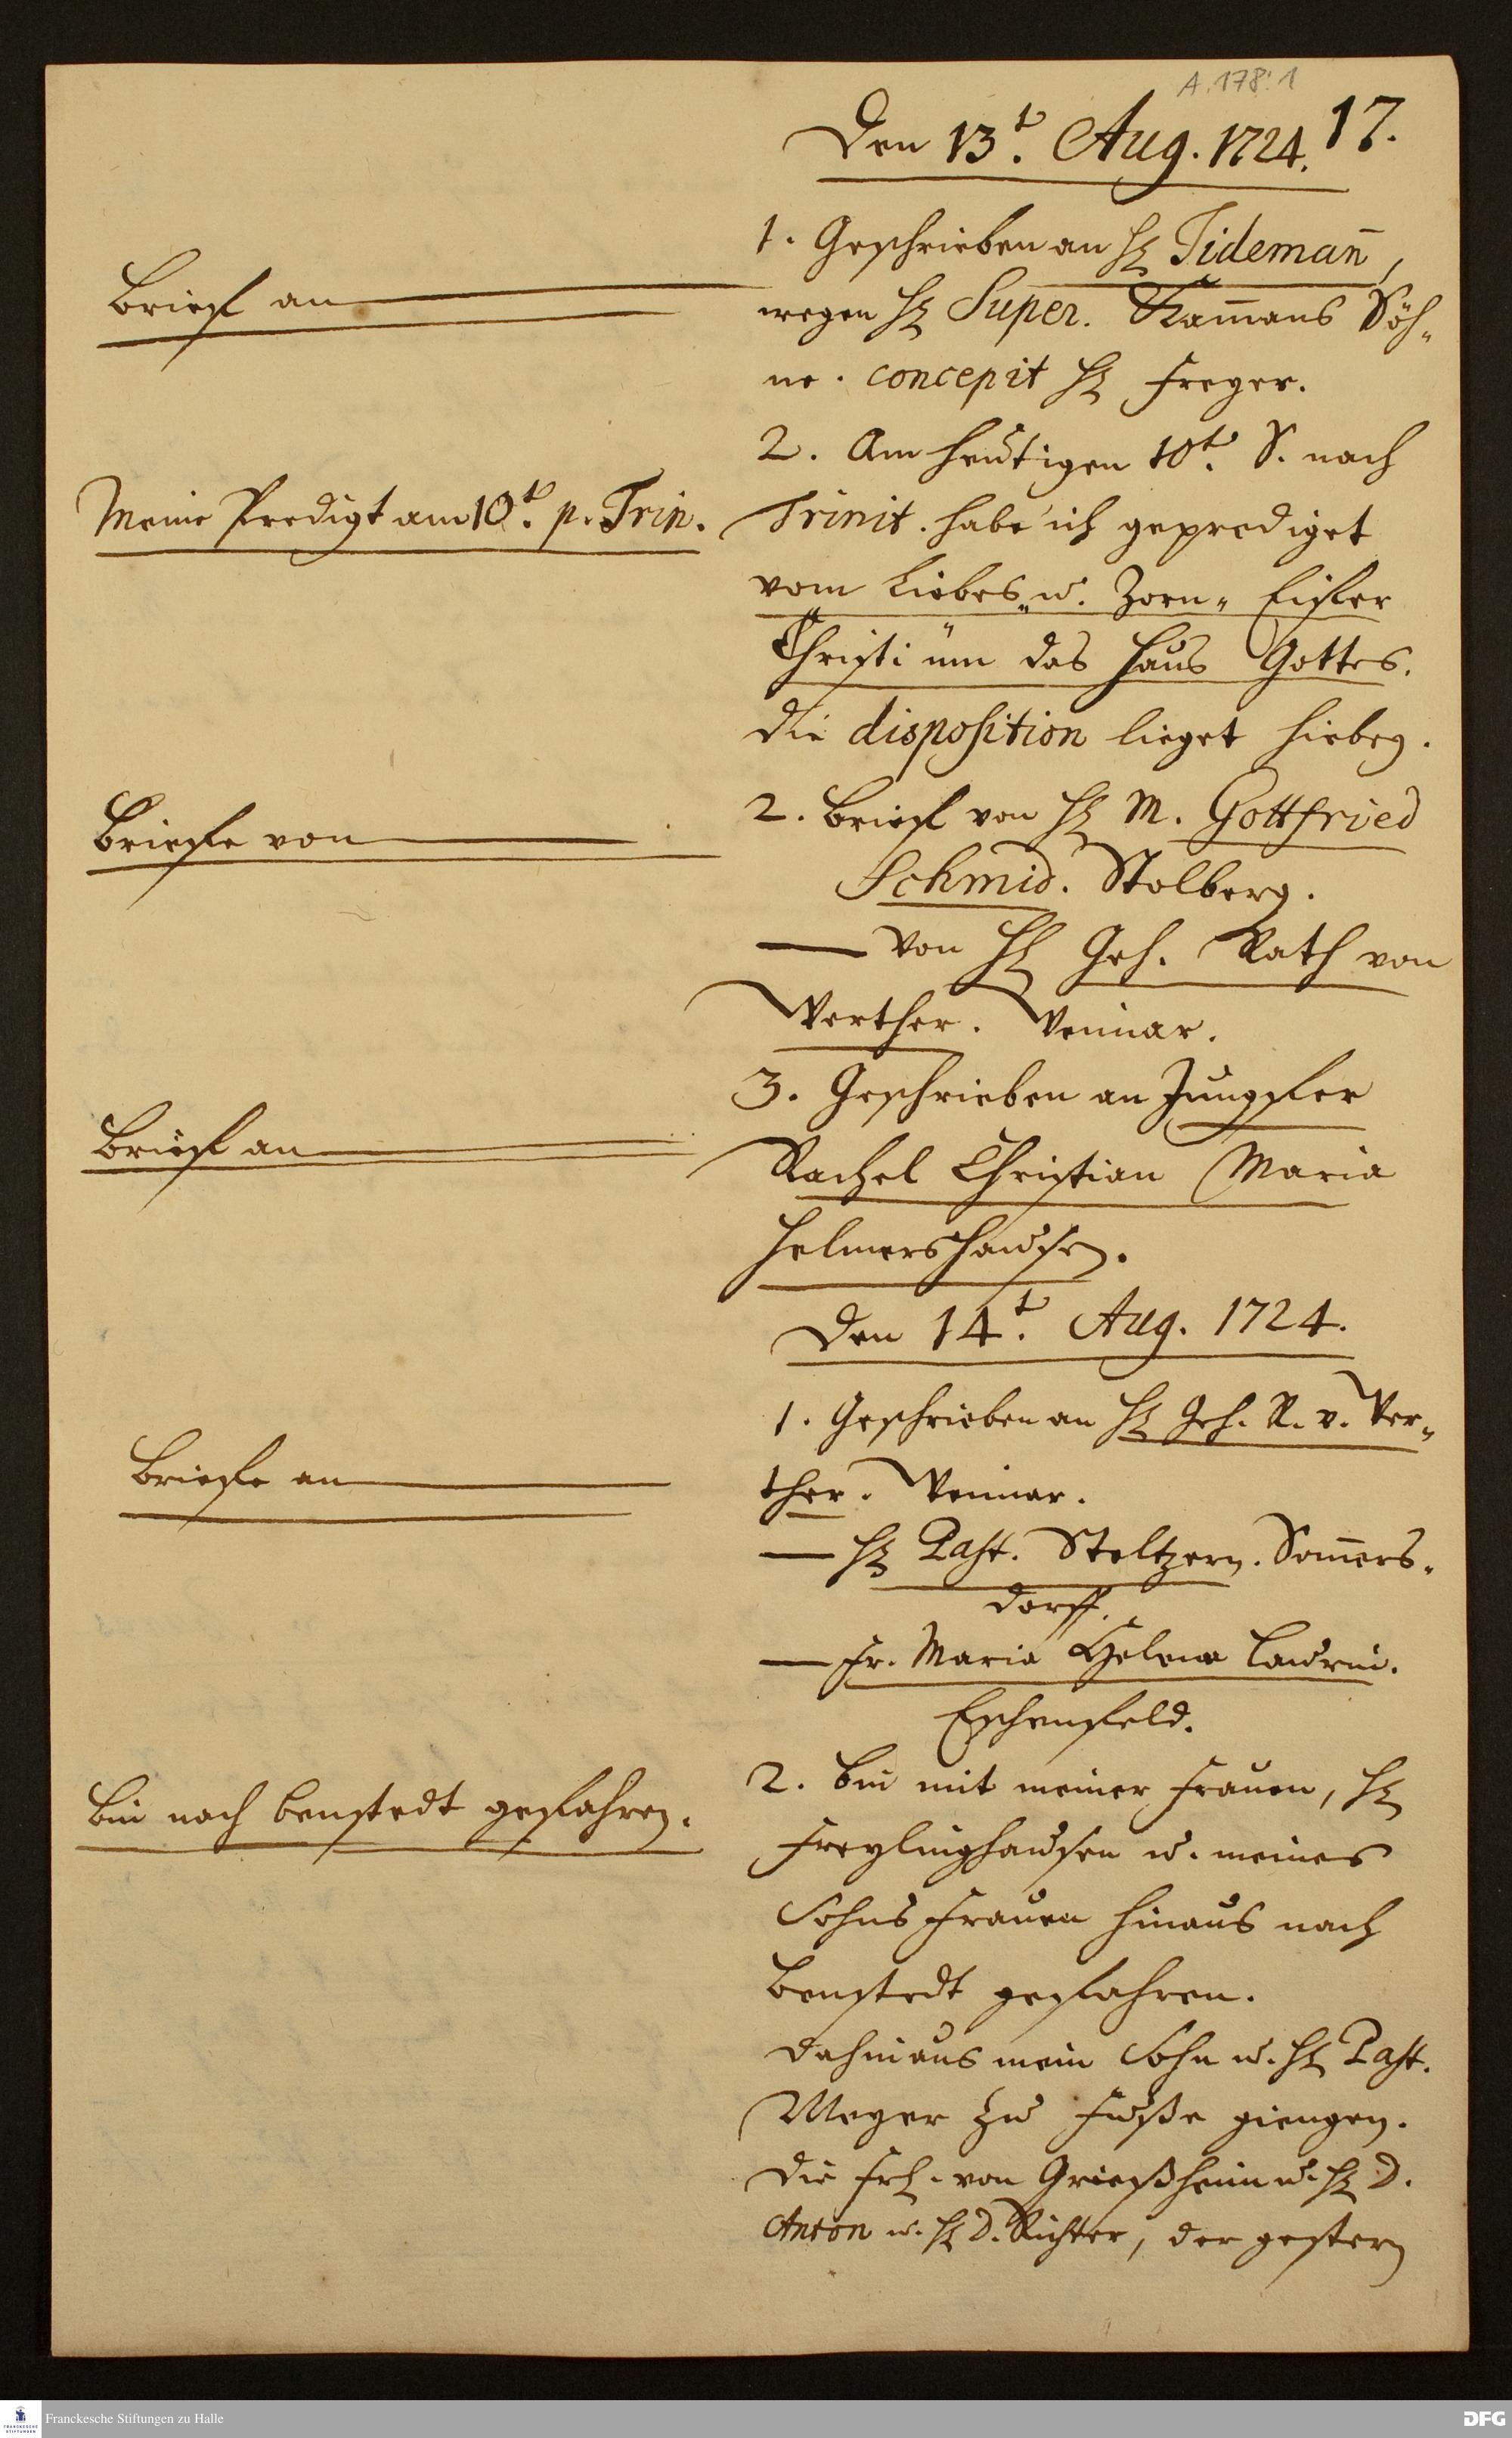 A.178:1
17.
Den 13t. Aug. 1724.
Brief an
1. Geschrieben an H. Tidemañ,
wegen H. Super. Kam̃ans Söh-
ne. concepit H. Freyer.
Meine Predigt am 10t. p. Trin.
2. Am heutigen 10t. S. nach
Trinit. habe ich geprediget
vom Liebes- u. Zorn- Eifer
Christi um das Hauß Gottes.
Die disposition lieget hiebey.
Briefe von
2. Brief von H. M. Gottfried
Schmid. Stolberg.
— Von H. Geh. Rath von
Werther. Weimar.
Brief an
3. Geschrieben an Jungfer
Rachel Christian Maria
Helmershausen.
Den 14t. Aug. 1724.
Briefe an
1. Geschrieben an H. Geh. R. v. Wer-
ther. Weimar.
— H. Past. Steltzern. Som̃ers-
dorff.
— Fr. Maria Helena Laurin.
Eschenfeld.
Bin nach Benstedt gefahren.
2. Bin mit meiner Frauen, H.
Freylinghausen u. meines
Sohns Frauen hinaus nach
Benstedt gefahren.
Dahinaus mein Sohn u. H. Past.
Meyer zu Fuße giengen.
Die Frl. von Grießheim u. H. D.
Anton u. H. D. Richter, der gestern
Franckesche Stiftungen zu Halle
FRANCKESCHE
STIFTUNGEN
DFG